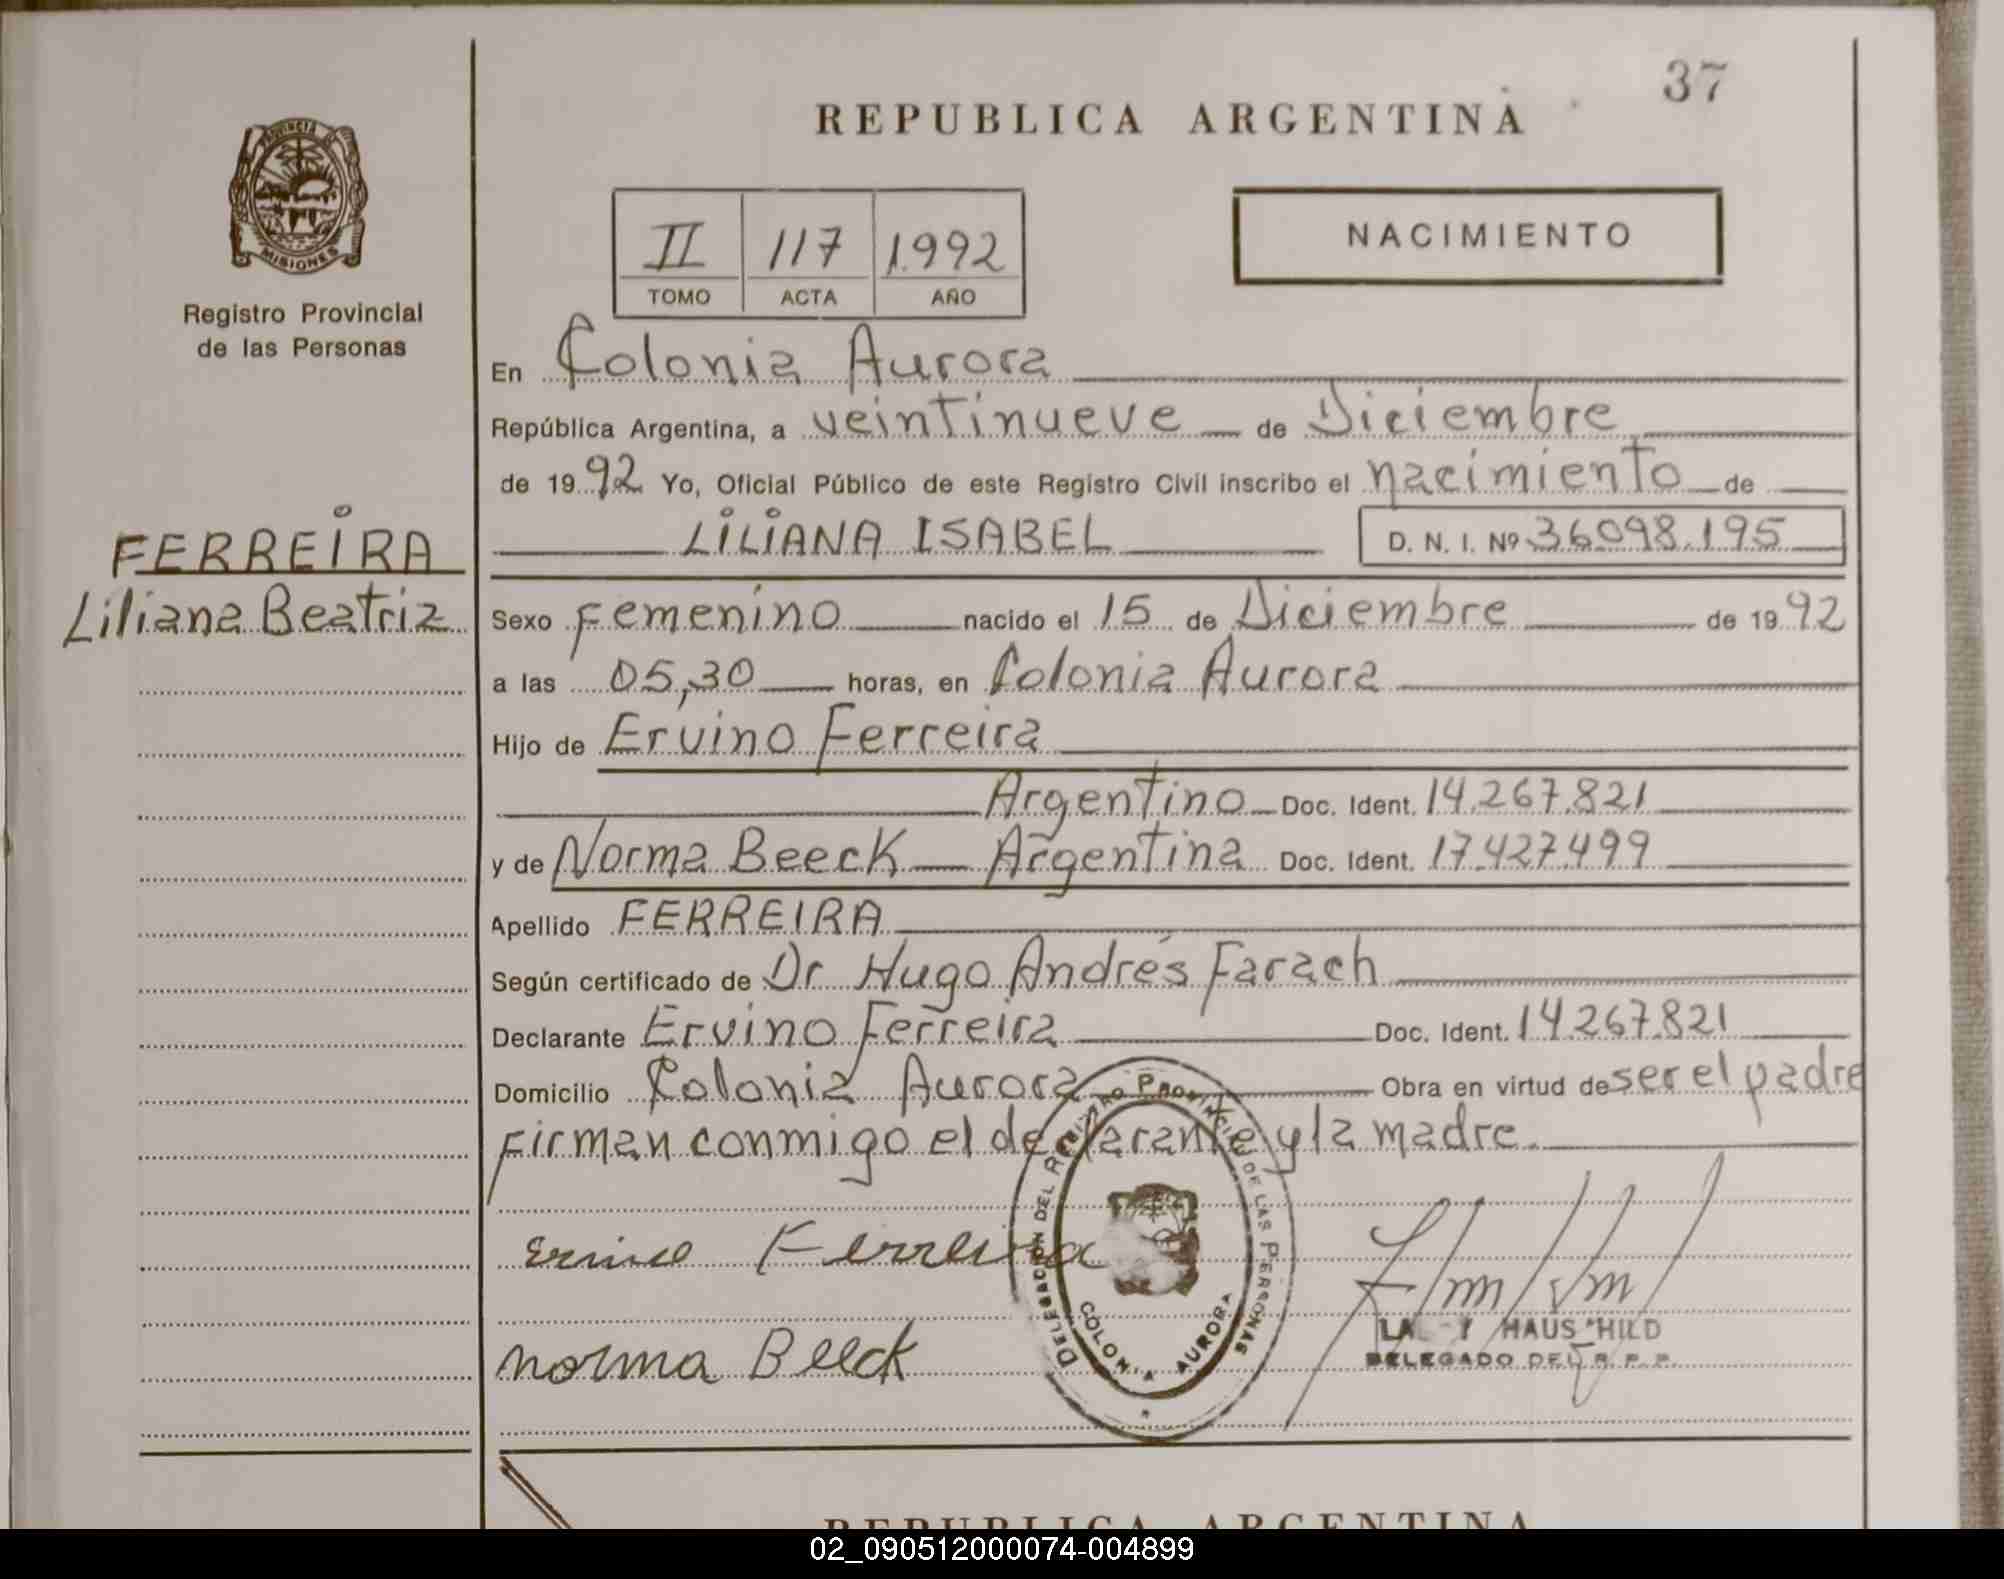 37
REPUBLICA ARGENTINA
PROVINCIA
MISIONES
Registro Provincial
de las Personas
NACIMIENTO
II 117 1.992
TOMO ACTA AÑO
En Colonia Aurora
República Argentina, a veintinueve de Diciembre
de 1992 Yo, Oficial Público de este Registro Civil inscribo el nacimiento de
LILIANA ISABEL D. N. I. Nº 36.098.195
FERREIRA
Liliana Beatriz
Sexo Femenino nacido el 15 de Diciembre de 1992
a las 05,30 horas, en Colonia Aurora
Hijo de Ervino Ferreira
Argentino Doc. Ident. 14.267.821
y de Norma Beeck Argentina Doc. Ident. 17.427.499
Apellido FERREIRA
Según certificado de Dr Hugo Andrés Farach
Declarante Ervino Ferreira Doc. Ident. 14.267.821
Domicilio Colonia Aurora Obra en virtud de ser el padre
Firman conmigo el declarante y la madre.
DELEGACION DEL REGISTRO PROVINCIAL DE LAS PERSONAS
COLONIA AURORA
Ervino Ferreira
Norma Beeck
DELEGADO DEL R. P. P.
REPUBLICA ARGENTINA
02_090512000074-004899